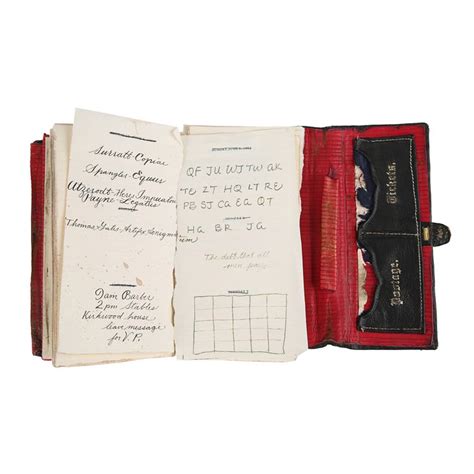 Surratt Copiae
Spangler Equus
Atzerodt Hero Impivatum
Payne Legatus
Thomas Gates Artifex
Sam Barber
2pm Stables
Kirkwood house
leave message
for V.P.
QF JU WJ TW QK
TE ZT HQ LT RE
PB SJ CA EQ QT
HG BR JG
The debt that all
men pay
Tickets.
Postage.